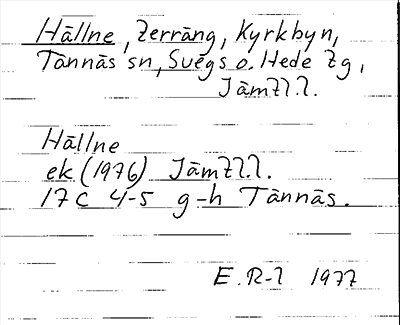 Hällne, Zerräng, Kyrkbyn,
Tännäs sn, Svegs o. Hede tg,
Jämtl.l.
Hällne
ek (1976) Jämtl.l.
17 C 4-5 g-h Tännäs.
E. R-l 1977